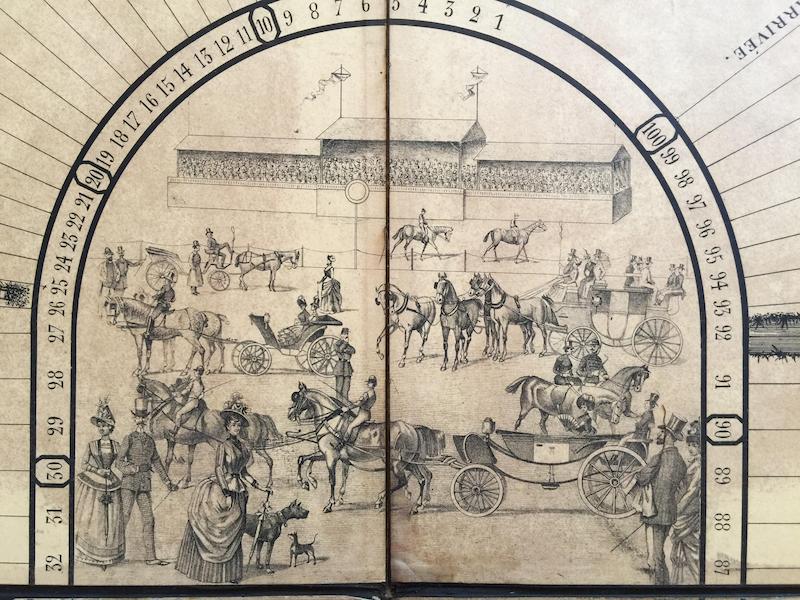 32 31 30 29 28 27 26 25 24 23 22 21 20 19 18 17 16 15 14 13 12 11 10 9 8 7 6 5 4 3 2 1
100 99 98 97 96 95 94 93 92 91 90 89 88 87
ARRIVÉE.